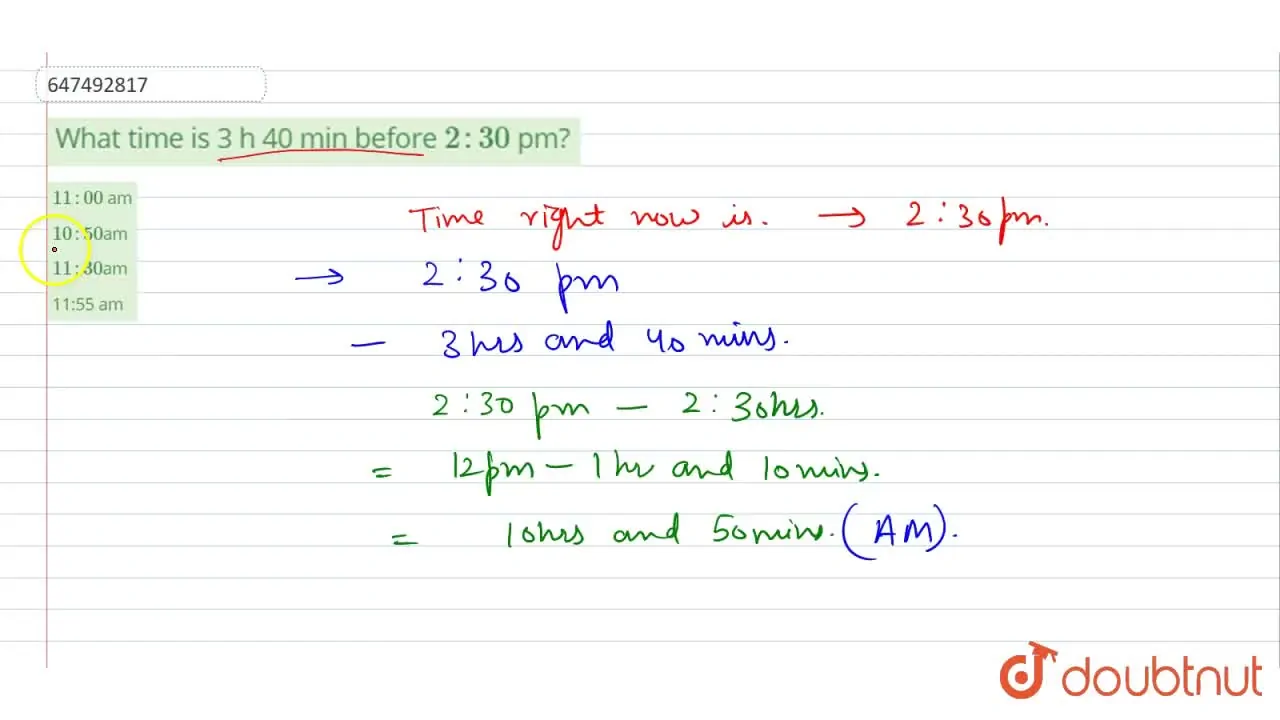 647492817
What time is 3 h 40 min before 2 : 30 pm?
11 : 00 am
10 : 50am
11 : 30am
11:55 am
Time right now is. → 2 : 30pm.
→ 2 : 30 pm
— 3hrs and 40 mins.
2 : 30 pm — 2 : 30hrs.
= 12pm — 1 hr and 10mins.
= 10hrs and 50mins. (AM).
doubtnut